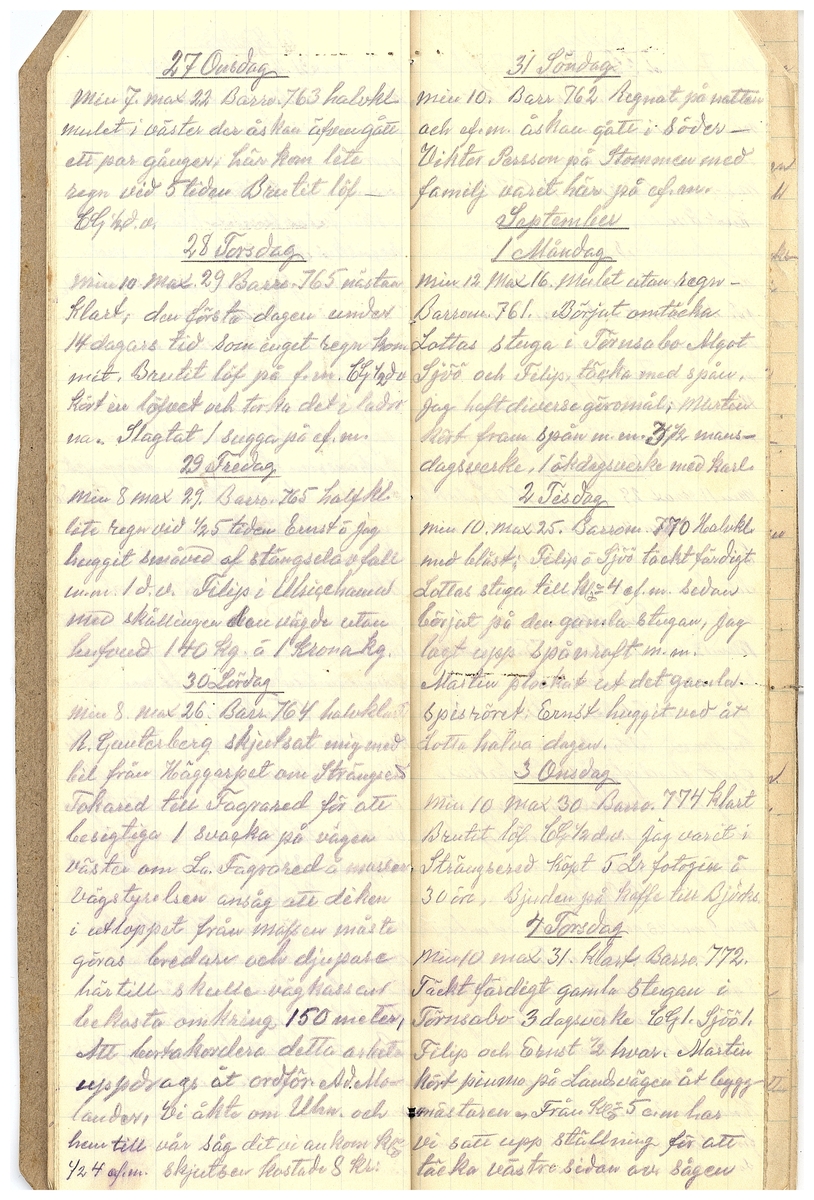 27 Onsdag
Min 7. max 22 Barro. 763 halvkl.
mulet i väster der åskan äfven gått
ett par gånger; här kom lite
regn vid 5 tiden Brutit löf —
CG ½ d.v.
28 Torsdag
Min 10 max. 29 Barro. 765 nästan
klart; den första dagen under
14 dagars tid som inget regn kom
mit. Brutit löf på f.m. CG ½ d v
kört in löfvet och torka det i lador
na. Slagtat 1 sugga på ef.m.
29 Fredag
Min 8 max 29. Barro. 765 halfkl.
lite regn vid ½5 tiden Ernst å jag
hugget småved af stängsel avfall
m.m. 1 d.v. Filip i Ulricehamn
med skällingen den vägde utan
hufvud 140 kg. á 1 krona kg.
30 Lördag
Min 8. max 26. Barr. 764. halvklart
R. Gunterberg skjutsat mig med
bil från Häggarpet om Strängsered
Tokared till Fagrared för att
besigtiga 1 svacka på vägen
väster om La. Fagrared å mossen,
Vägstyrelsen ansåg att diken
i utloppet från mossen måste
göras bredare och djupare
härtill skulle vägkassan
bekosta omkring 150 meter,
Att bortakordera detta arbete
uppdrags åt ordför. Ad. Mo-
lander, Vi åkte om Uhn. och
hem till vår såg dit vi ankom kl.
½ 4 ef.m. skjutsen kostade 8 kr:
31 Söndag
Min 10. Barr 762 Regnat på natten
och ef.m. åskan gått i söder —
Viktor Persson på Stommen med
familj varit här på ef.m.
September
1 Måndag
Min 12 Max 16. Mulet utan regn —
Barrom. 761. Börjat omtäcka
Lottas stuga i Törnsabo Algot
Sjöö och Filip, täcka med spån.
Jag haft diverse göromål; Martin
kört fram spån m.m. 3½ mans-
dagsverke, 1 ökdagsverke med karl.
2 Tisdag
Min 10. max 25. Barrom. 770 Halvkl.
med blåst; Filip å Sjöö täckt färdigt
Lottas stuga till kl. 4 ef.m. sedan
börjat på den gamla stugan, jag
lagt upp spånroft m.m.
Martin plockat ut det gamla
spisröret; Ernst huggit ved åt
Lotta halva dagen.
3 Onsdag
Min 10 max 30 Barro. 774 klart
Brutit löf CG ½ d.v. jag varit i
Strängsered köpt 5 Ltr fotogen á
30 öre, Bjuden på kaffe till Björks.
4 Torsdag
Min 10 max 31. klart Barro. 772.
Täckt färdigt gamla stugan i
Törnsabo 3 dagsverke CG 1. Sjöö 1.
Filip och Ernst ½ hvar. Martin
kört pinmo på Landsvägen åt bygg-
mästaren, Från kl. 5 em har
vi satt upp ställning för att
täcka västra sidan av sågen